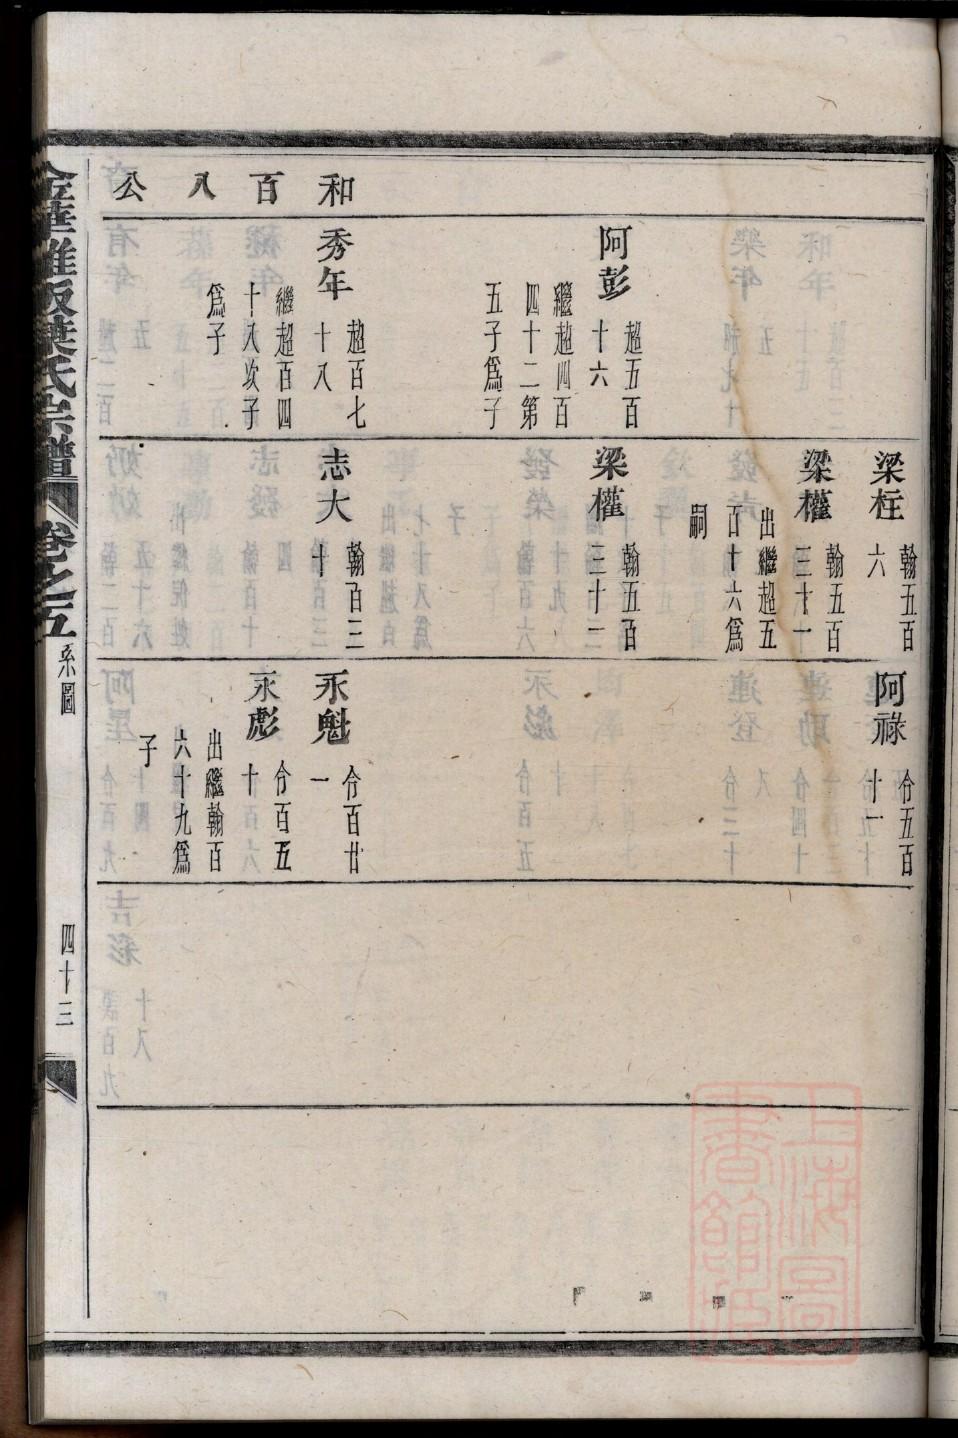 和百八公
阿彭
超五百
十六
繼超四百
四十二第
五子為子
秀年
超百七
十八
繼超百四
十八次子
為子
梁柱
翰五百
六
梁權
翰五百
三十一
出繼超五
百十六為
嗣
梁權
翰五百
三十一
志大
翰百三
十
阿祿
仝五百
十一
永魁
仝百廿
一
永彪
仝百五
十
出繼翰百
六十九為
子
葉氏宗譜
卷之五
系圖
四十三
上海圖書館藏